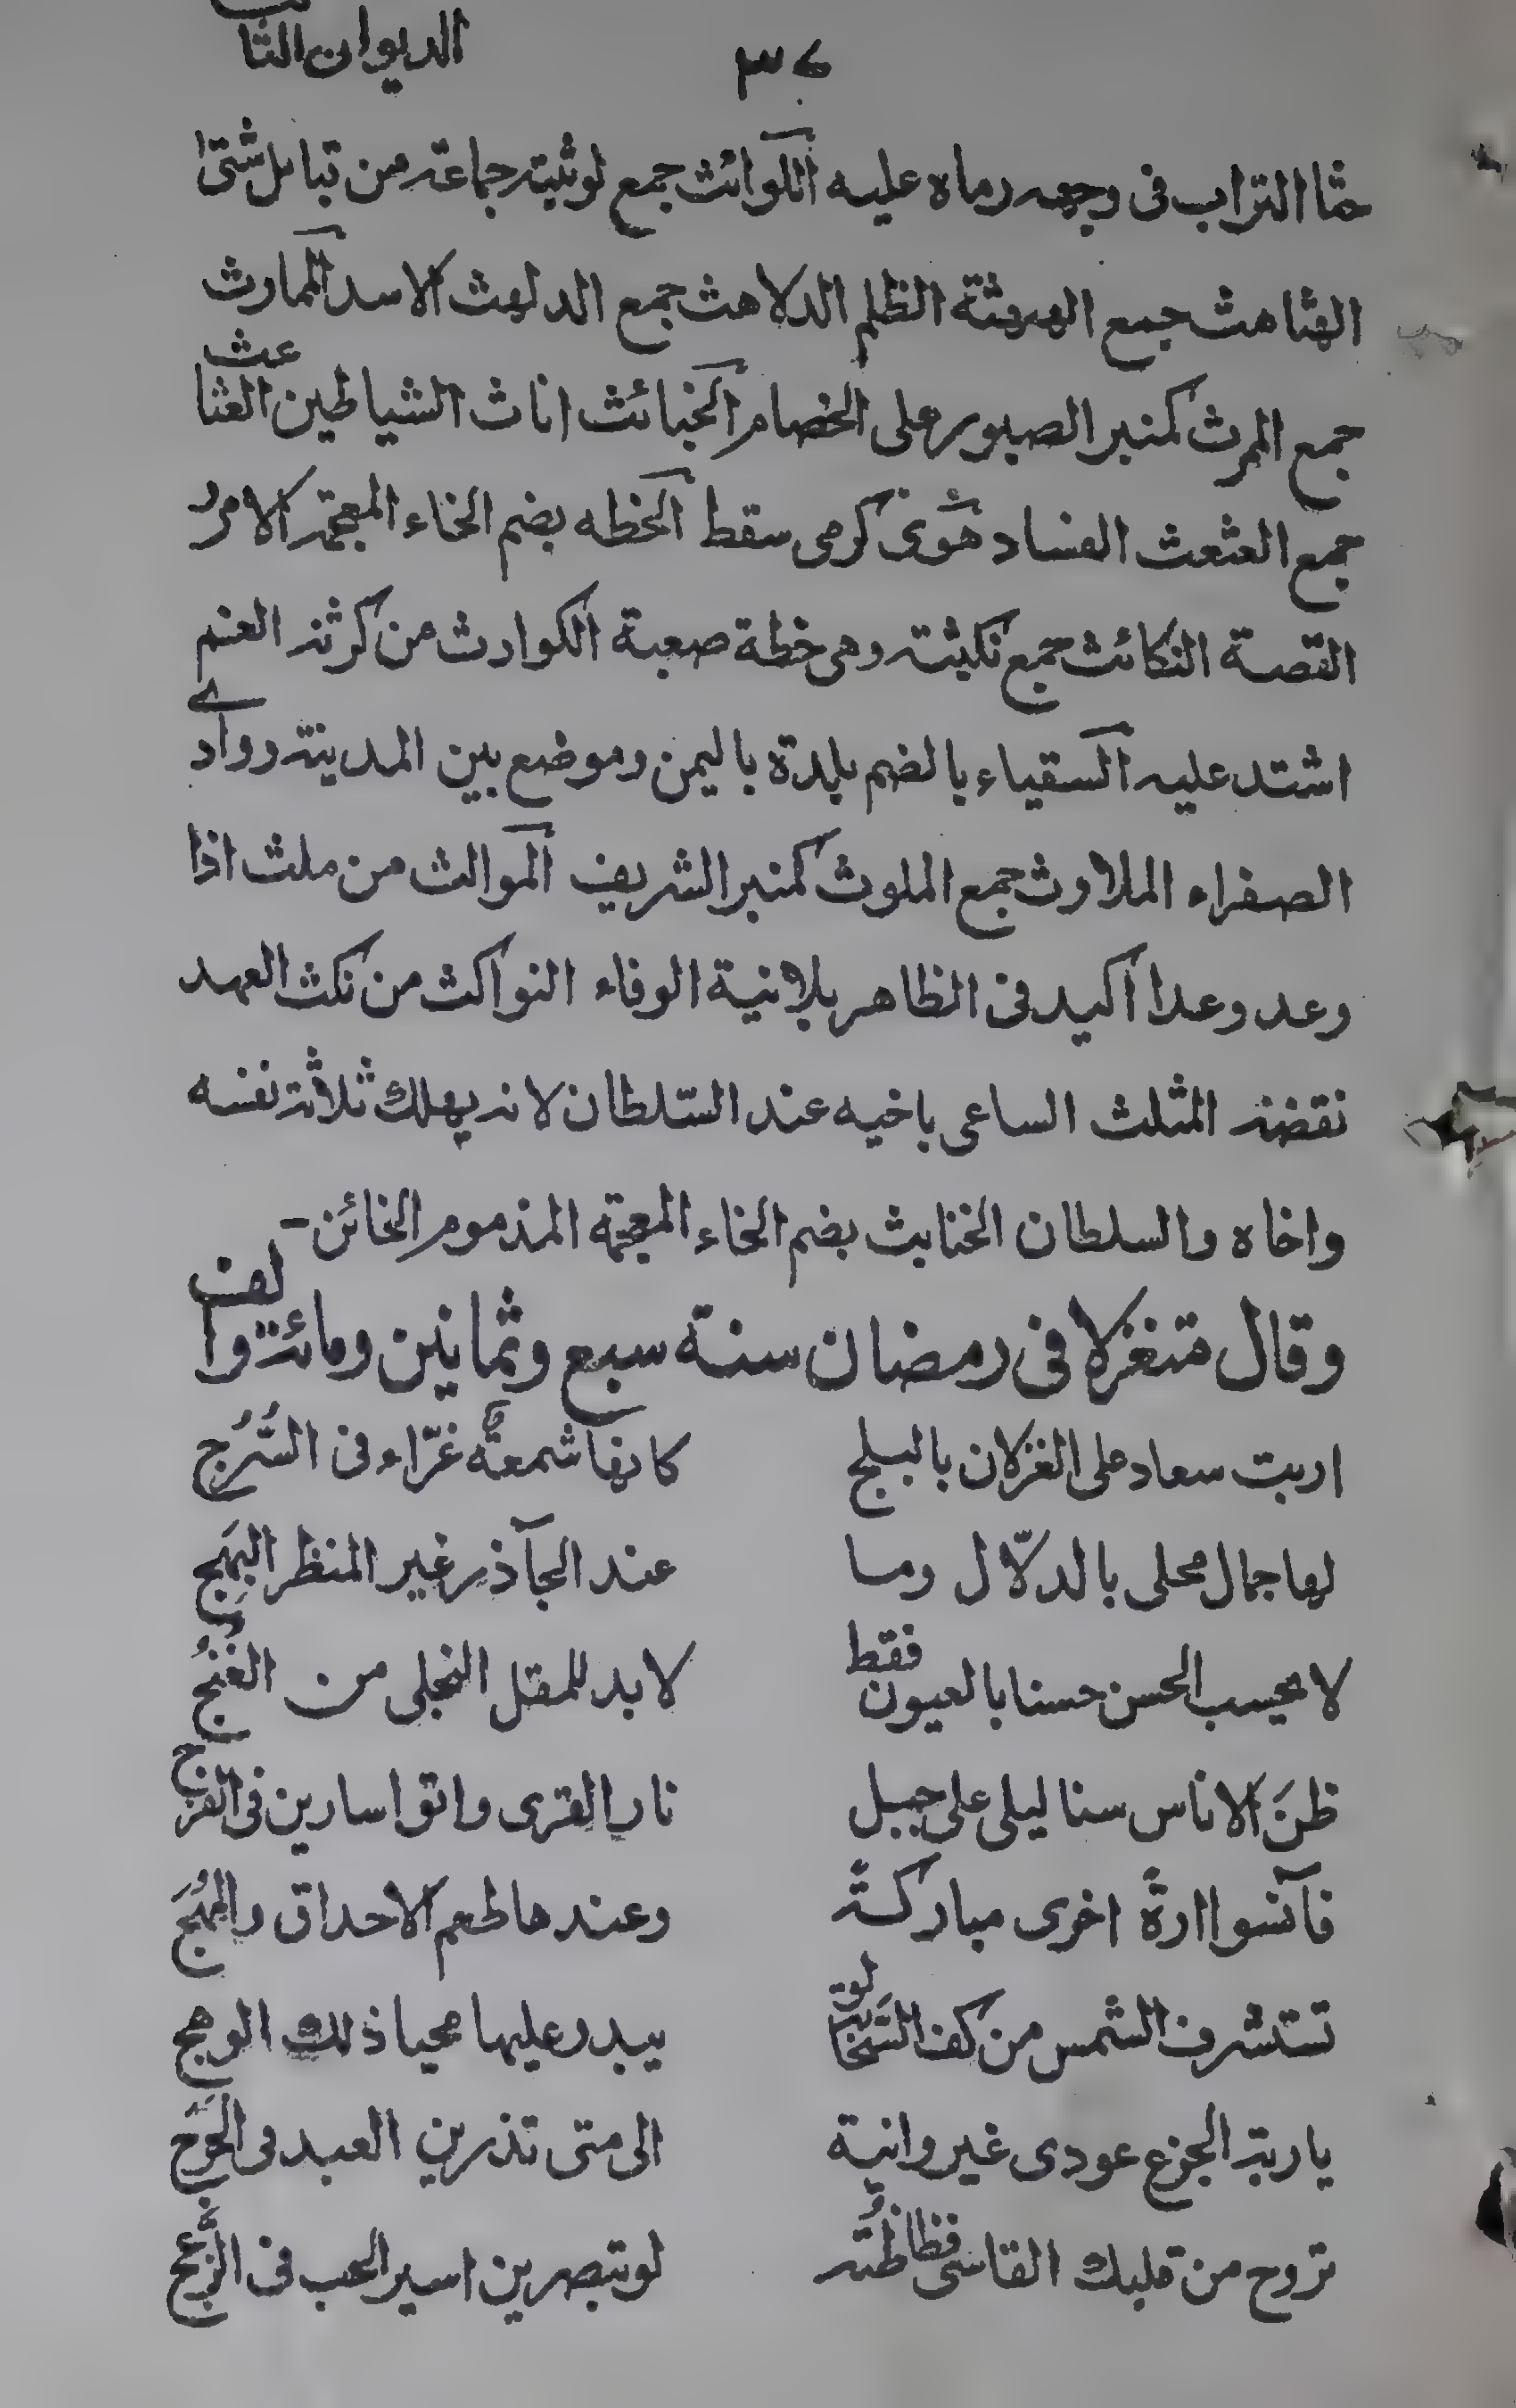 ٣٤ الديوان الثانى
حثا التراب فى وجهه رماه عليه اللوائث جمع لويثة جماعة من قبائل شتى
الهثاهث جمع الهثهثة الظلم الدلاهث جمع الدلهث الاسد الممارث
جمع الممرث كمنبر الصبور على الخصام الخبائث اناث الشياطين العثاعث
جمع العثعث الفساد هوى كرمى سقط الخطه بضم الخاء المعجمة الامر
القصة النكائث جمع نكيثة وهى خطة صعبة الكوارث من كرثه الغنم
اشتد عليه السقياء بالضم بلدة باليمن وموضع بين المدينة ووادى
الصفراء الملاوث جمع الملوث كمنبر الشريف الموالث من ملث اذا
وعد وعدا اكيد فى الظاهر بلا نية الوفاء النواكث من نكث العهد
نقضه المثلث الساعى باخيه عند السّلطان لانه يهلك ثلاثة نفسه
واخاه والسلطان الخنابث بضم الخاء المعجمة المذموم الخائن -
وقال متغزلا فى رمضان سنة سبع وثمانين ومائة والف
اربت سعاد على الغزلان بالبلج كانها شمعةٌ غرّاء فى السُّرُج
لها جمال محلى بالدلّال وما عند الجآذر غير المنظر البَهِج
لا يحسب الحسن حسنا بالعيون فقط لا بد للمقل النجلى من الغُنُج
ظنَ الاناس سنا ليلى على جبل نار القرى واتوا سارين فى
فآنسوا ارةً اخرى مباركةً وعندها طعم الاحداق والمُهَج
تستشرف الشمس من كف يبدر عليها محيا ذلك الوهج
يا ربة الجزع عودى غير وانية الى متى تذرين العبد فى
تروح من قلبك القاسى لو تبصرين اسير الحب فى الزَّعَج